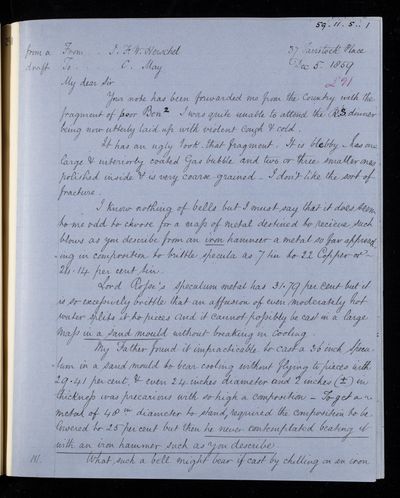 59. 11. 5.. 1
from a From .. J. F. W. Herschel 37 Tavistock Place
draft To .. C. May Dec 5. 1859
£91
My dear Sir
Your note has been forwarded me from the Country with the
fragment of poor Ben. I was quite unable to attend the dinner
being now utterly laid up with violent Cough & cold.
It has an ugly look that fragment. It is blebby. has one
large & interiorly coated Gas bubble and two or three smaller ones
polished inside & is very coarse grained - I don't like the sort of
fracture.
I know nothing of bells but I must say that it does seem
to me odd to choose for a mass of metal destined to recieve such
blows as you describe from an iron hammer a metal so far approach
-ing in composition to brittle specula as 7 tin to 22 Copper or
24.14 per cent tin.
Lord Rosse's speculum metal has 31.79 per cent but it
is so excessively brittle that an affusion of even moderately hot
water splits it to pieces and it cannot possibly be cast in a large
mass in a sand mould without breaking in cooling.
My Father found it impracticable to cast a 36 inch specu-
lum in a sand mould to bear cooling without flying to pieces with
29.41 per cent. & even 24 inches diameter and 2 inches (±) in
thickness was precarious with so high a composition - To get a
metal of 48 in diameter to stand, required the composition to be
lowered to 25 per cent but then he never contemplated beating it
with an iron hammer such as you describe
What such a bell might bear if cast by chilling on an iron